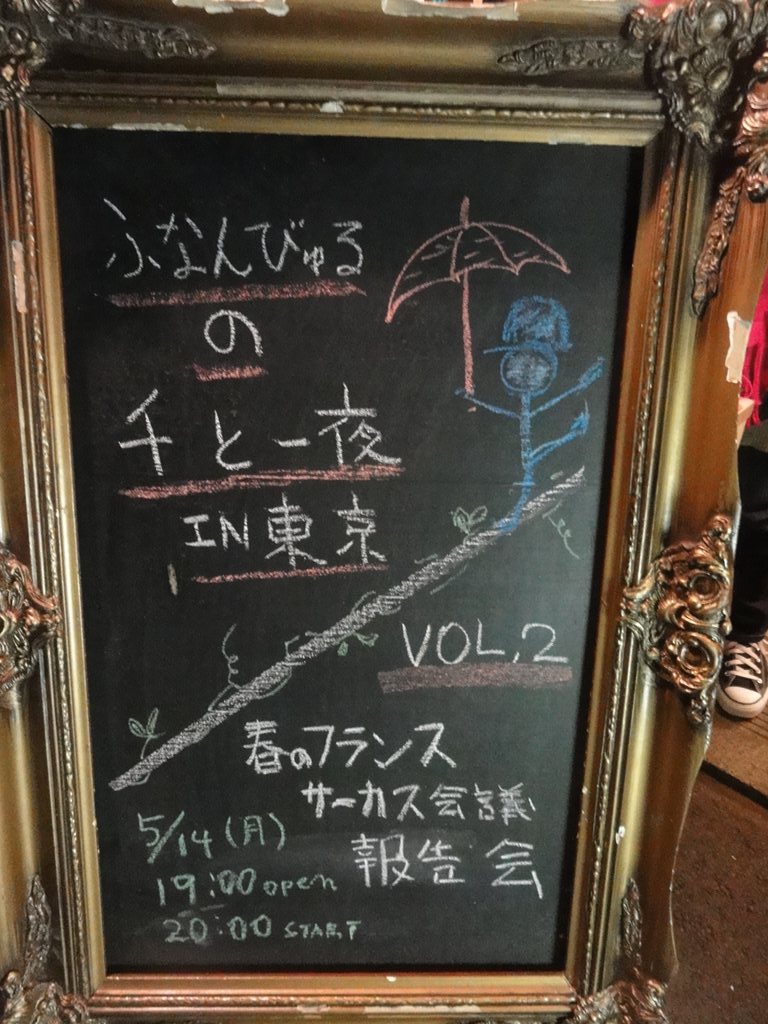 ふなんびゅる
の
千と一夜
IN東京
VOL.2
春のフランス
サーカス会議
報告会
5/14(月)
19:00 open
20:00 START